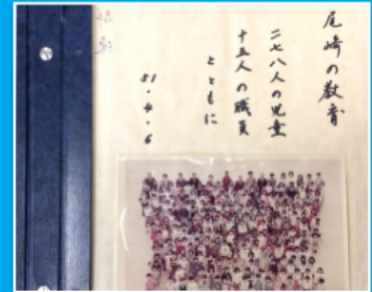 尾崎の教育
二七八人の児童
十五人の職員
とともに
51・4・6